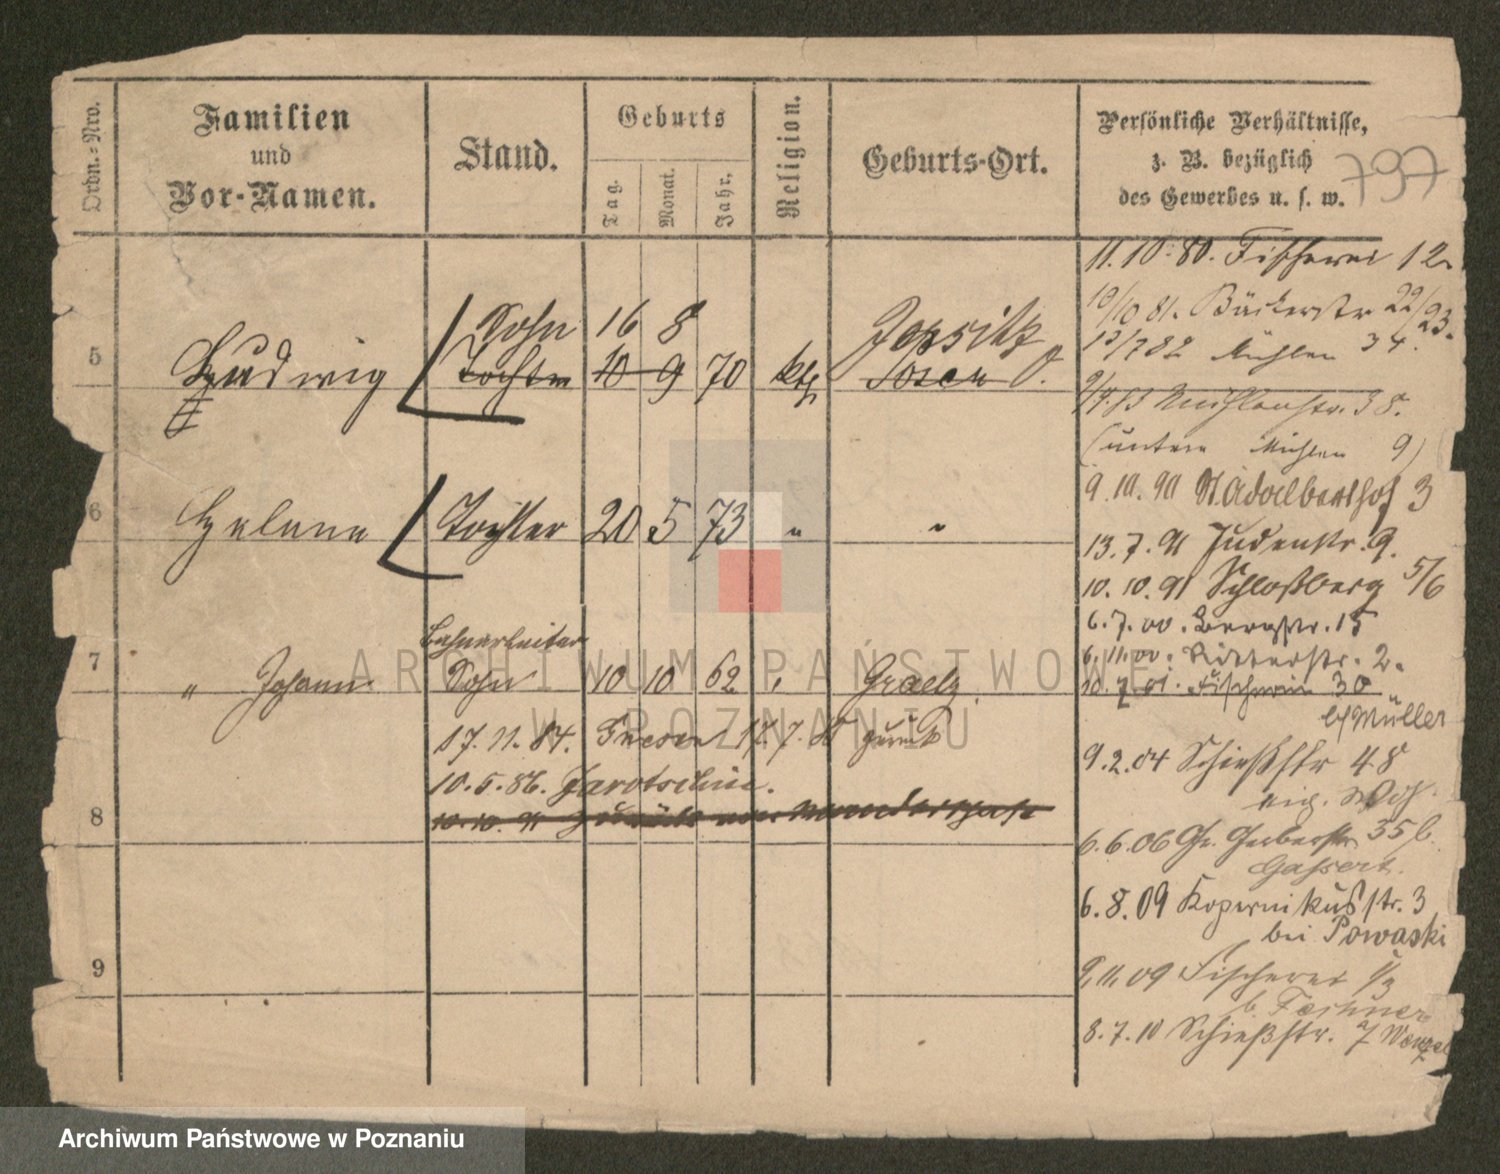 Ordn.-Nro.
Familien
und
Vor-Namen.
Stand.
Geburts
Tag.
Monat.
Jahr.
Religion.
Geburts-Ort.
Persönliche Verhältnisse,
z. B. bezüglich
des Gewerbes u. s. w.
797
5
Ludwig
Sohn 16 8
Tochter 10 9 70 kth
Posen
6
Helene
Tochter 20 5 73 "
"
7
" Johann
Bahnarbeiter
Sohn 10 10 62 "
Graetz
17.11.84. Gnesen 17.7. zurück
10.5.86. Jarotschin.
8
10.10.91 zurück von Wanderschaft
9
11.10.80. Fischerei 12.
10/10 81. Bäckerstr 22/23.
13/7 82 Mühlen 34.
9/4.83 Mühlenstr. 38.
(untere Mühlen 9)
9.10.90 St Adalberthof 3
13.7.91 Judenstr. 9.
10.10.91 Schloßberg 5/6
6.7.00. Bergstr. 15
6.11.00. Ritterstr. 2.
10.7.01. Fischerei 30
b/ Müller
9.2.04 Schießstr 48
6.6.06 Gr. Gerberstr 35 b.
Gassert.
6.8.09 Kopernikusstr. 3
bei Powaski
9.11.09 Fischerei
b. Feshner
8.7.10 Schießstr. 7 Wenzel
ARCHIWUM PAŃSTWOWE
W POZNANIU
Archiwum Państwowe w Poznaniu